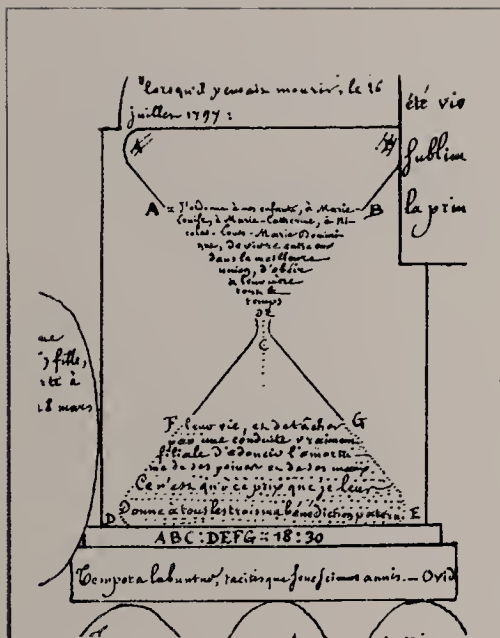 lorsqu'il pensait mourir, le 16
juillet 1797 :
été vis
sublim
la prin
A = J'ordonne à mes enfants, à Marie- B
Louise, à Marie-Catherine, à Ni-
colas-Louis-Marie-Domini-
que, de vivre entre eux
dans la meilleure
union, d'obéir
à leur mère
tout le
temps
DE
C
fille,
té à
18 mars
F leur vie, et de tâcher G
par une conduite vraiment
filiale d'adoucir l'amertu
me de ses peines et de ses maux
Ce n'est qu'à ce prix que je leur
D Donne à tous les trois ma bénédiction patern E
ABC:DEFG::18:30
Tempora labuntur, tacitisque senescimus annis. — Ovid